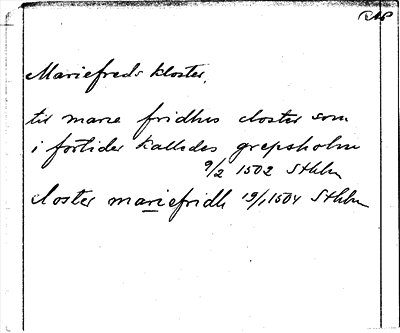 Mariefreds kloster.
til marie fridhus closter som
i fortider kalledes grepsholm
9/2 1502 Sthlm
closter mariefridh 19/1 1504 Sthlm